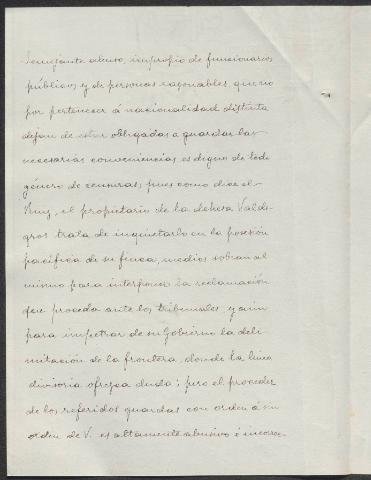 Semejante abuso, impropio de funcionarios
públicos y de personas razonables, que no
por pertenecer á nacionalidad distinta
dejan de estar obligadas a guardar las
necesarias conveniencias es digno de todo
género de censuras; pues como dice el
Ruiz, el propietario de la dehesa Valde-
gros trata de inquietarlo en la posesión
pacífica de su finca, medios sobran al
mismo para interponer la reclamación
que proceda ante los tribunales y aun
para impetrar de su Gobierno la deli-
mitación de la frontera, donde la linea
divisoria ofrezca duda; pero el proceder
de los referidos guardas con orden ó sin
orden de V. es altamente abusivo é incorre-